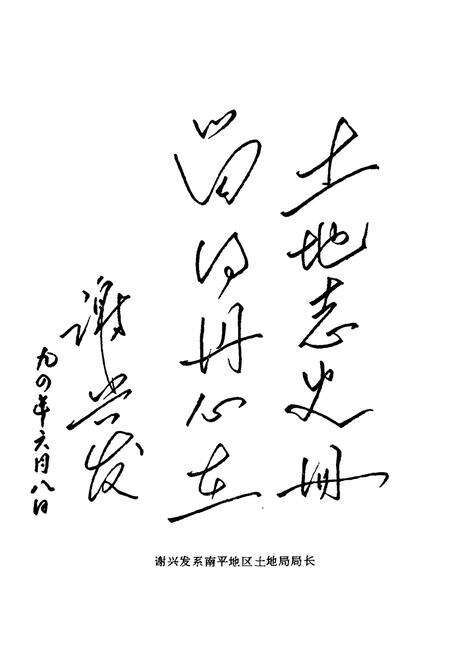 土地志史册
留得丹心在
谢兴发
九〇年六月八日
谢兴发系南平地区土地局局长